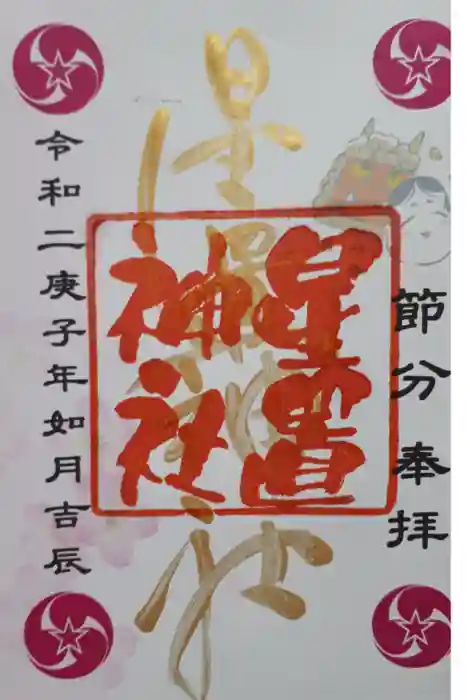 節分 奉拝
星置神社
星置
神社
令和二庚子年如月吉辰